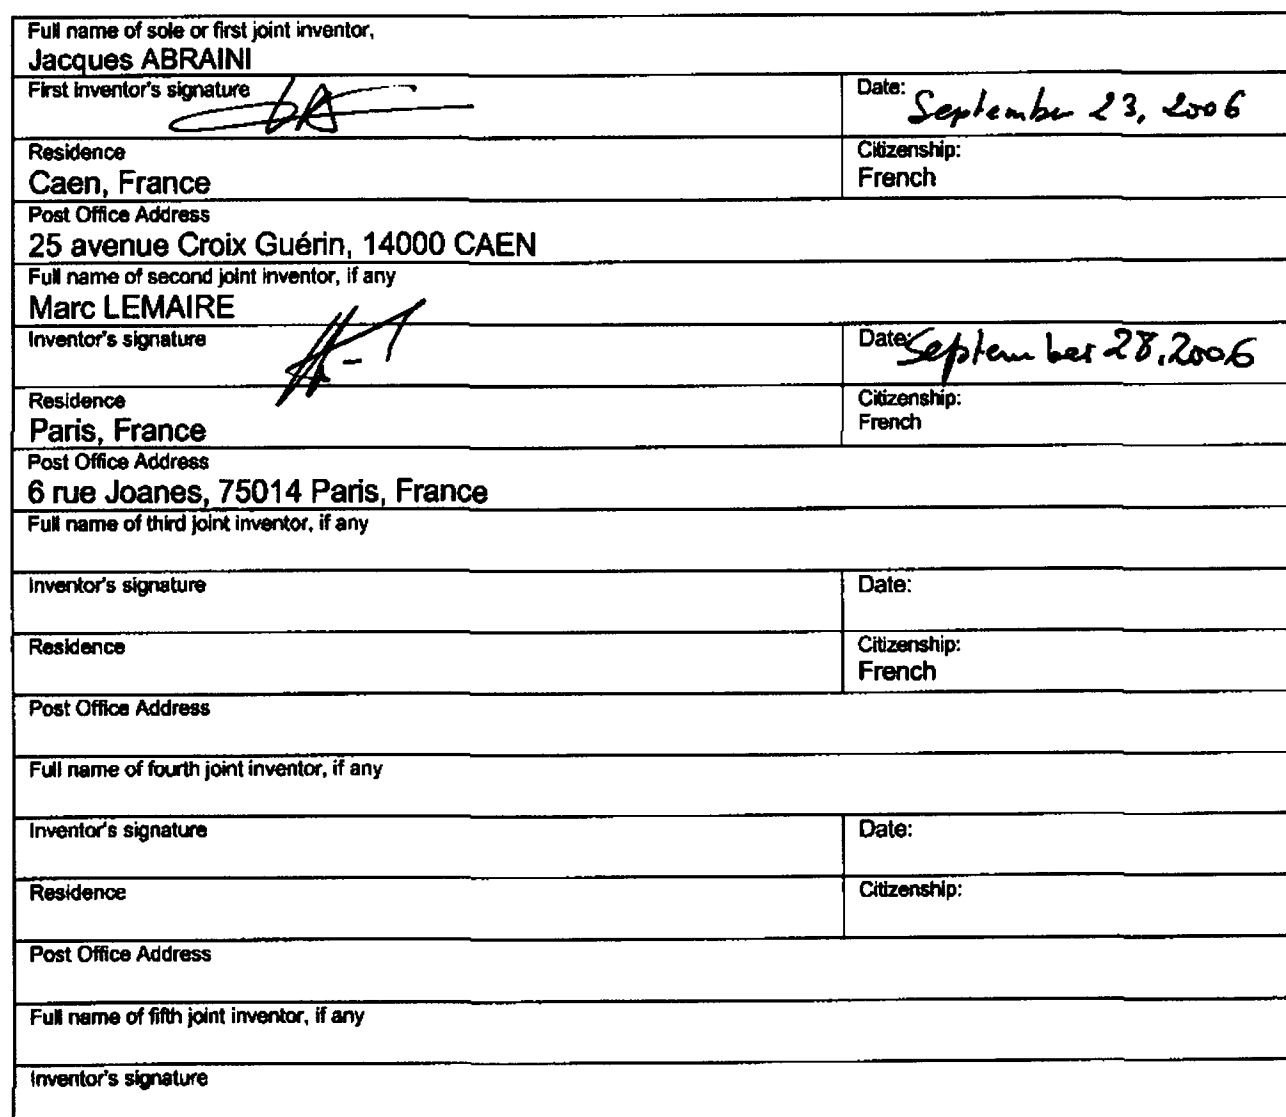 Full name of sole or first joint inventor,
Jacques ABRAINI
First inventor's signature
Date: September 23, 2006
Residence
Caen, France
Citizenship:
French
Post Office Address
25 avenue Croix Guérin, 14000 CAEN
Full name of second joint inventor, if any
Marc LEMAIRE
Inventor's signature
Date: September 28, 2006
Residence
Paris, France
Citizenship:
French
Post Office Address
6 rue Joanes, 75014 Paris, France
Full name of third joint inventor, if any
Inventor's signature
Date:
Residence
Citizenship:
French
Post Office Address
Full name of fourth joint inventor, if any
Inventor's signature
Date:
Residence
Citizenship:
Post Office Address
Full name of fifth joint inventor, if any
Inventor's signature